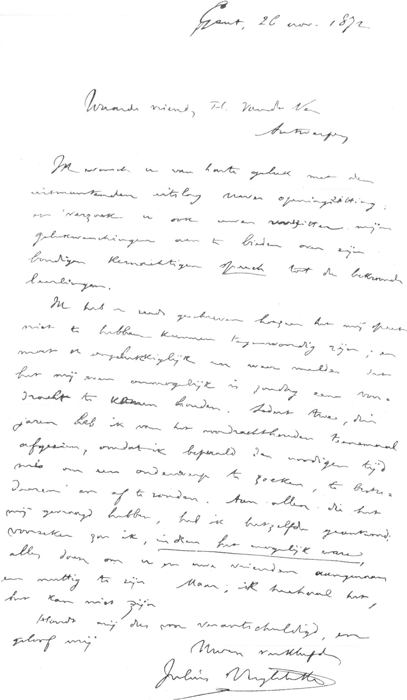 Gent, 26 nov. 1872
Waarde vriend, Th. Van de Ven
Antwerpen
Ik wensch u van harte geluk met den
uitmuntenden uitslag uwer openingzitting
en verzoek u ook uwen voorzitter mijn
gelukwenschingen aan te bieden over zijn
bondigen kernachtigen speech tot de bekroonde
leerlingen.
Ik heb u reeds geschreven hoezeer het mij speet
niet te hebben kunnen tegenwoordig zijn; en
moet ik ongelukkiglijk u weer melden dat
het mij even onmogelijk is zondag eene voor-
dracht te komen houden. Sedert twee, drie
jaren heb ik van het voordrachthouden teenemaal
afgezien, omdat ik bepaald den noodigen tijd
mis om een onderwerp te zoeken, te bestu-
deeren en af te ronden. Aan allen die het
mij gevraagd hebben, heb ik hetzelfde geantwoord.
Voorzeker zou ik, indien het mogelijk ware,
alles doen om u en uwe vrienden aangenaam
en nuttig te zijn. Maar, ik herhaal het,
het kan niet zijn.
Houdt mij dus voor verantschuldigd, en
geloof mij
Uwen
Julius Vuylsteke